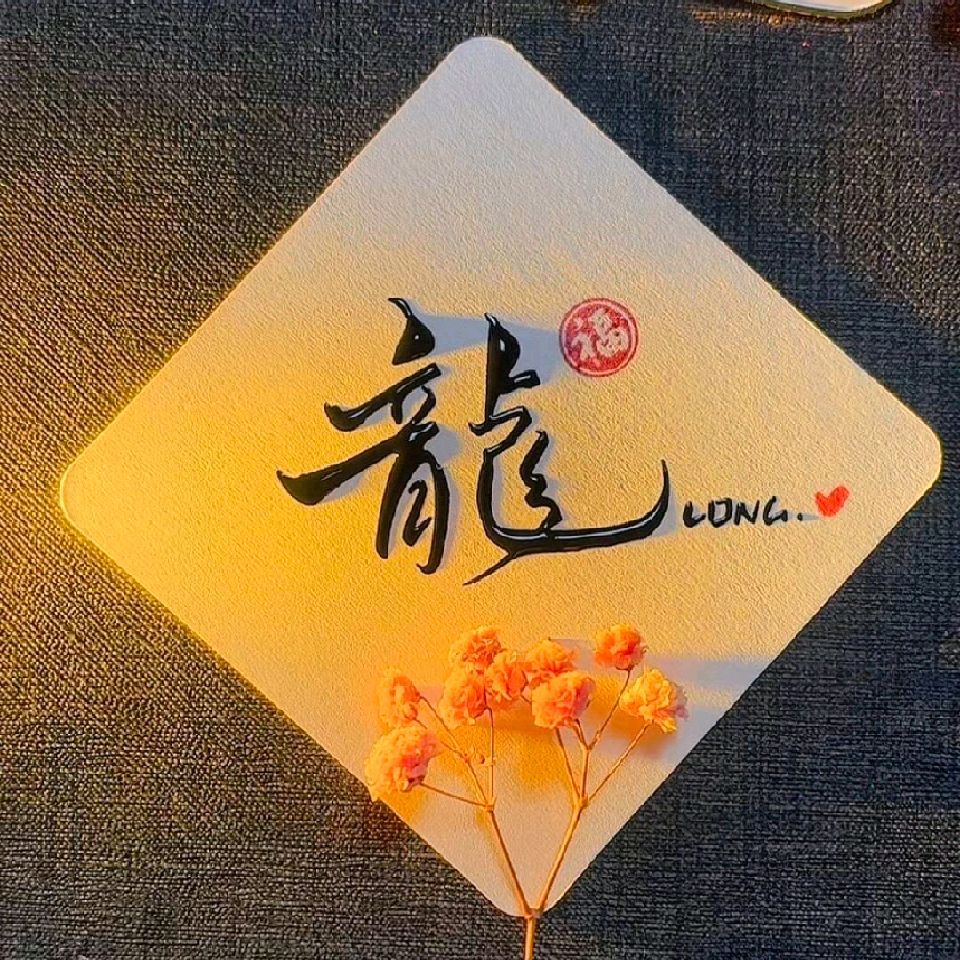 福
龍
LONG.